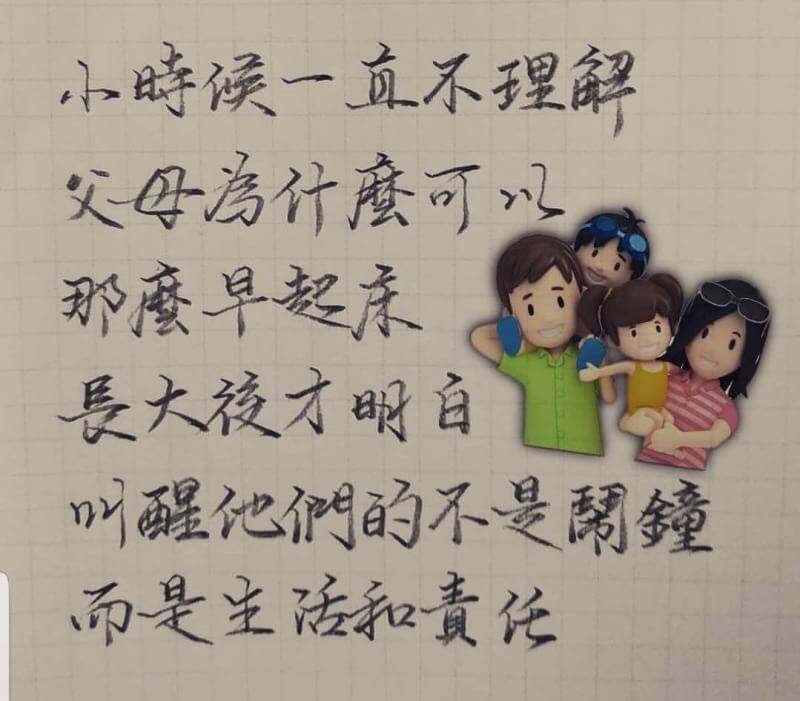 小時候一直不理解
父母為什麼可以
那麼早起床
長大後才明白
叫醒他們的不是鬧鐘
而是生活和責任